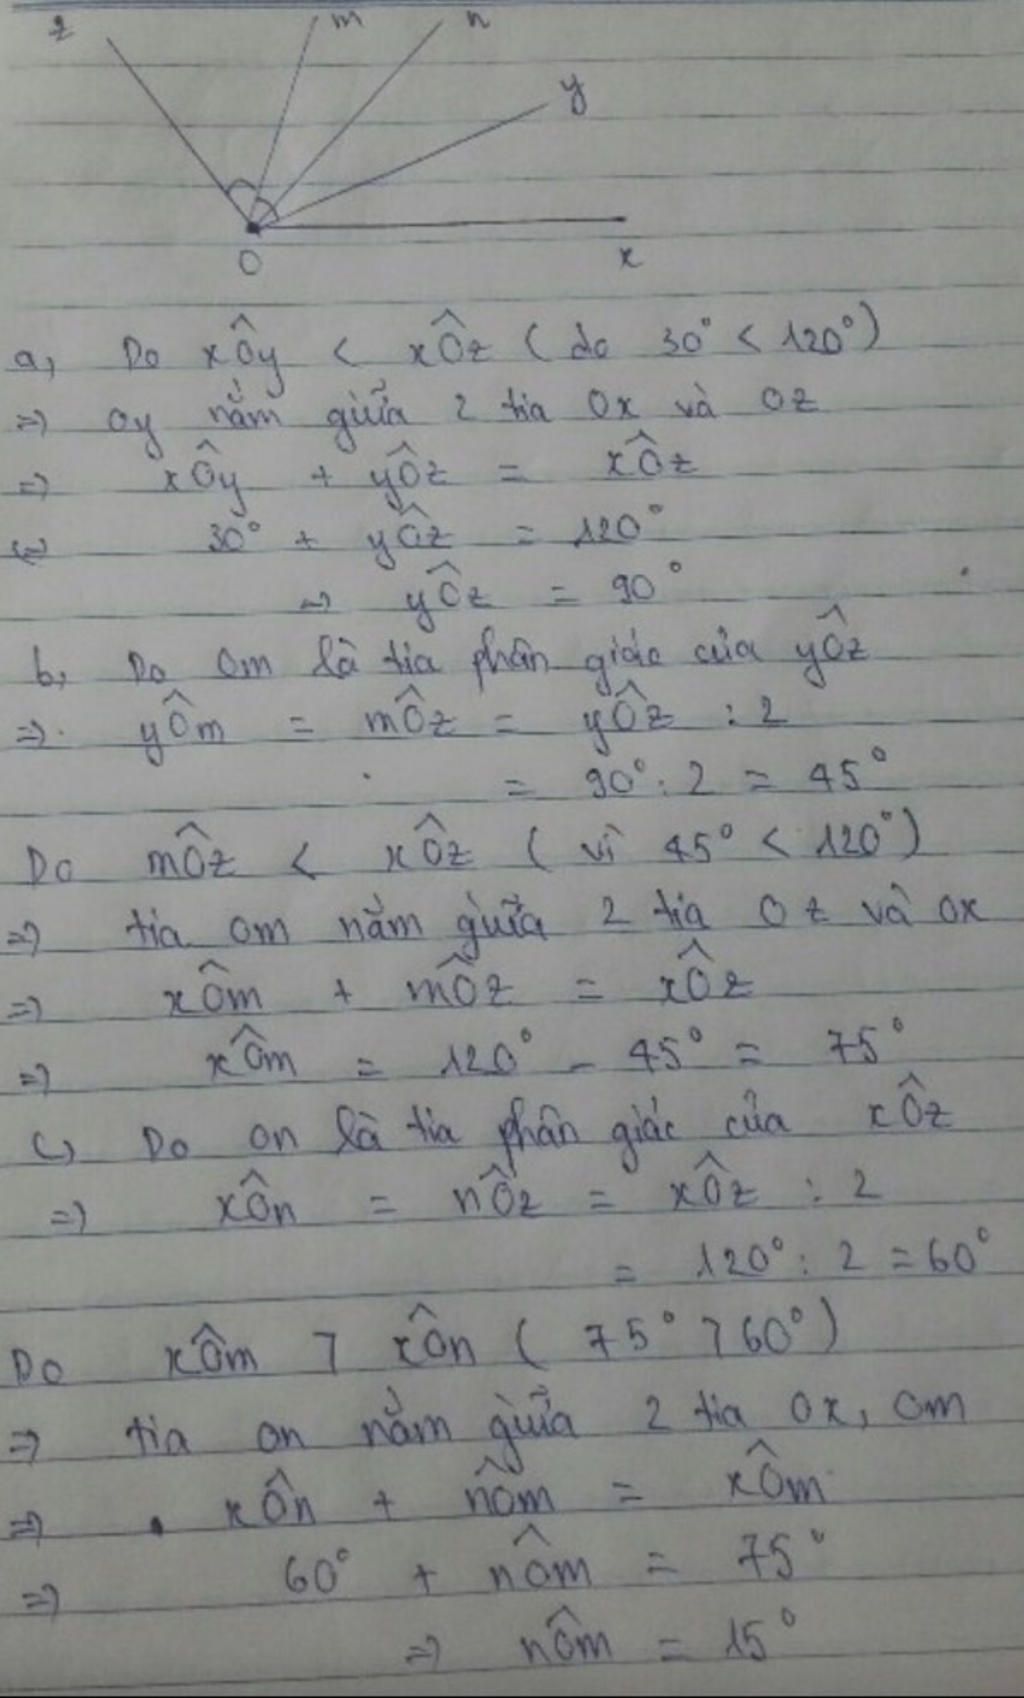 z m n
y
O x
a, Do xÔy < xÔz ( do 30° < 120°)
=> Oy nằm giữa 2 tia Ox và Oz
=> xÔy + yÔz = xÔz
<=> 30° + yÔz = 120°
=> yÔz = 90°
b, Do Om là tia phân giác của yÔz
=> yÔm = mÔz = yÔz : 2
= 90° : 2 = 45°
Do mÔz < xÔz ( vì 45° < 120°)
=> tia Om nằm giữa 2 tia Oz và Ox
=> xÔm + mÔz = xÔz
=> xÔm = 120° - 45° = 75°
c, Do On là tia phân giác của xÔz
=> xÔn = nÔz = xÔz : 2
= 120° : 2 = 60°
Do xÔm > xÔn ( 75° > 60°)
=> tia On nằm giữa 2 tia Ox, Om
=> xÔn + nÔm = xÔm
=> 60° + nÔm = 75°
=> nÔm = 15°